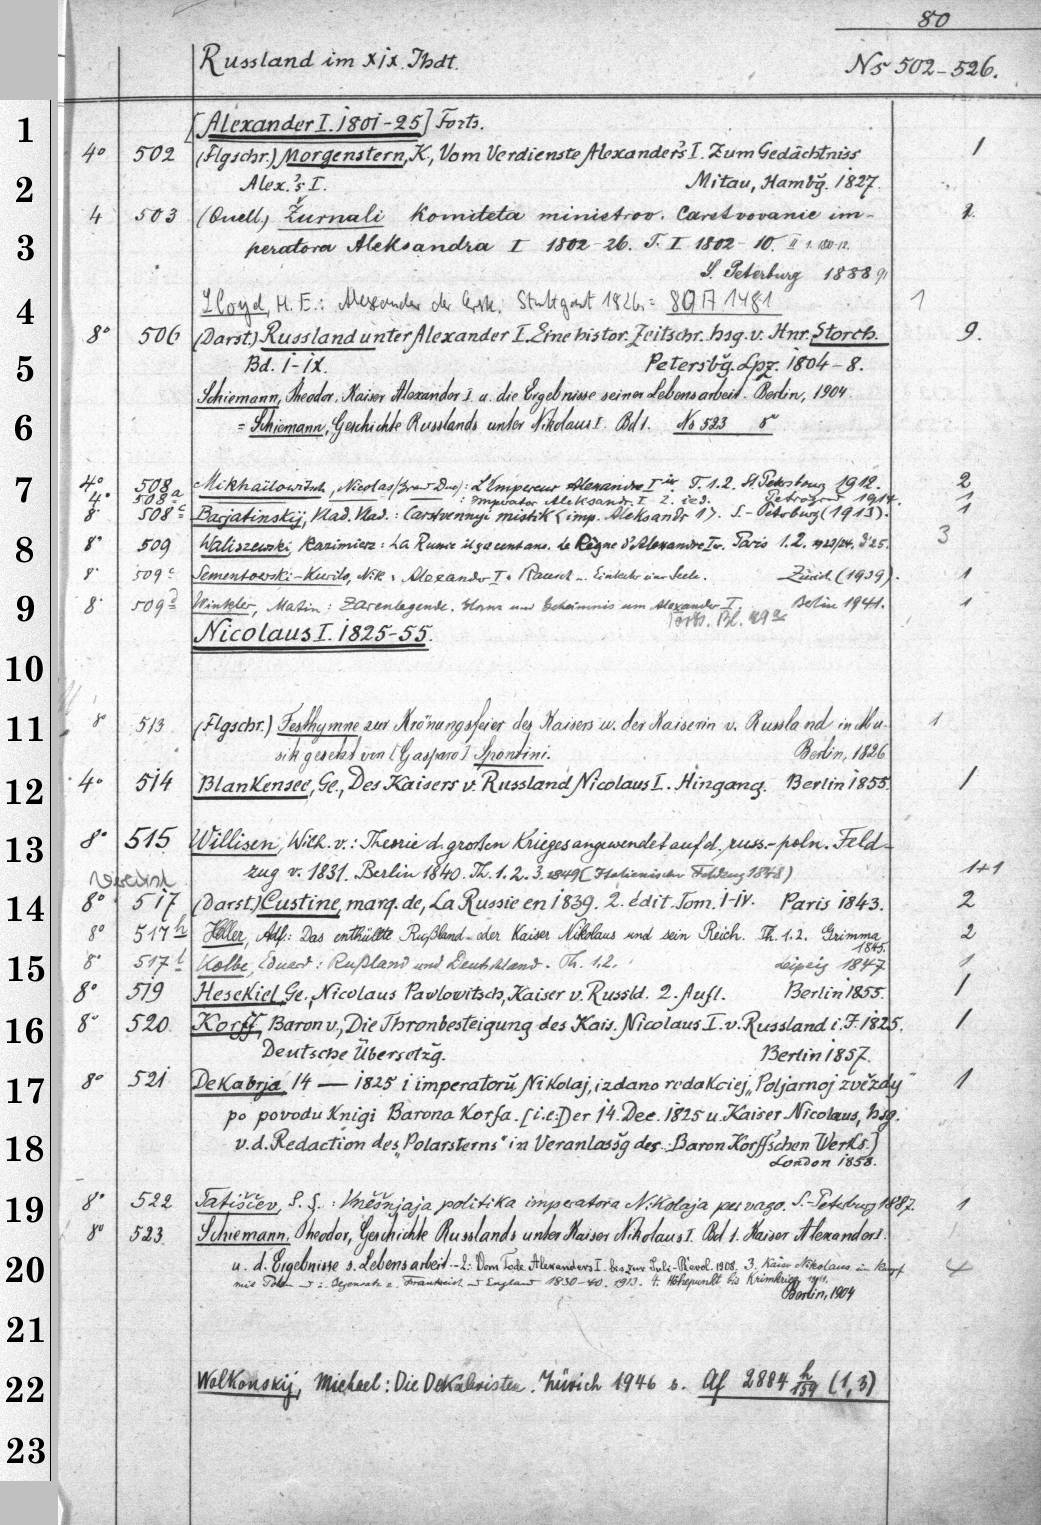 80
Russland im XIX. Jhdt.
No 502-526.
1
[Alexander I. 1801-25] Forts.
4° 502 (Flgschr.) Morgenstern, K., Vom Verdienste Alexander's I. Zum Gedächtniss 1
2 Alex.'s I. Mitau, Hambg. 1827.
4 503 (Quell.) Žurnali Komiteta ministrov. Carstvovanie im-
3 peratora Aleksandra I 1802-26. T. I 1802-10.
S. Peterburg 1888
4 Lloyd, H. E.: Alexander der Erste. Stuttgart 1826 = 8QA 1481 1
8° 506 (Darst.) Russland unter Alexander I. Eine histor. Zeitschr. hsg. v. Hnr. Storch. 9.
5 Bd. I-IX. Petersbg. Lpz. 1804-8.
Schiemann, Theodor, Kaiser Alexander I. u. die Ergebnisse seiner Lebensarbeit. Berlin, 1904
6 = Schiemann, Geschichte Russlands unter Nikolaus I. Bd 1. No 523 8°
7 4° 508 Mikhaïlowitsch, Nicolas (Grand Duc): L'Empereur Alexandre Ier T. 1.2. St. Petersbourg 1912. 2
4° 508a : Imperator Aleksandr I 2. izd. Petrograd 1914. 1
8° 508c Barjatinskij, Vlad. Vlad.: Carstvennyj mistik <imp. Aleksandr I>. S.-Peterburg (1913). 1
8 8° 509 Waliszewski, Kazimierz: La Russie il y a cent ans. Le Règne d'Alexandre Ier. Paris 1.2. 1923/24. 3'25. 3
8° 509c Sementowski-Kurilo, Nik.: Alexander I. Rausch u. Einkehr einer Seele. Zürich (1939). 1
9 8° 509d Winkler, Martin: Zarenlegende. Glanz und Geheimnis um Alexander I. Berlin 1941. 1
Forts. Bl. 79a
Nicolaus I. 1825-55.
10
11 8° 513 (Flgschr.) Festhymne zur Krönungsfeier des Kaisers u. der Kaiserin v. Russland in Mu- 1
sik gesetzt von [Gasparo] Spontini. Berlin, 1826
12 4° 514 Blankensee, Ge., Des Kaisers v. Russland Nicolaus I. Hingang. Berlin 1855. 1
13 8° 515 Willisen, Wilh. v.: Theorie d. großen Krieges angewendet auf d. russ.-poln. Feld-
zug v. 1831. Berlin 1840. Th. 1.2. 3. 1849 (Italienischer Feldzug 1848) 1+1
14 8° 517 (Darst.) Custine, marq. de, La Russie en 1839. 2. édit. Tom. I-IV. Paris 1843. 2
8° 517h Heller, Alf.: Das enthüllte Rußland oder Kaiser Nikolaus und sein Reich. Th. 1.2. Grimma 2
1845.
15 8° 517l Kolbe, Eduard: Rußland und Deutschland. Th. 1.2. Leipzig 1847 1
8° 519 Hesekiel, Ge., Nicolaus Pawlowitsch, Kaiser v. Russld. 2. Aufl. Berlin 1855. 1
16 8° 520 Korff, Baron v., Die Thronbesteigung des Kais. Nicolaus I. v. Russland i. J. 1825. 1
Deutsche Übersetzg. Berlin 1857.
17 8° 521 Dekabrja 14 — 1825 i imperatorŭ Nikolaj, izdano redakciej „Poljarnoj zvězdy" 1
po povodu knigi Barona Korfa. [i.e. Der 14. Dec. 1825 u. Kaiser Nicolaus, hsg.
18 v. d. Redaction des „Polarsterns" in Veranlassg des Baron Korff'schen Werks.]
London 1858.
19 8° 522 Tatiščev, S. S.: Vněšnjaja politika imperatora Nikolaja pervago. S.-Peterburg 1887. 1
8° 523 Schiemann, Theodor, Geschichte Russlands unter Kaiser Nikolaus I. Bd 1. Kaiser Alexander I.
20 u. d. Ergebnisse s. Lebensarbeit. 2: Vom Tode Alexanders I. bis zur Juli-Revol. 1908. 3. Kaiser Nikolaus im Kampf 4
mit Polen u. Frankreich u. England 1830-40. 1913. 4. Höhepunkt bis Krimkrieg
Berlin, 1904
21
22 Wolkonskij, Michael: Die Dekabristen. Zürich 1946 s. Af 2884 h/159 (1,3)
23